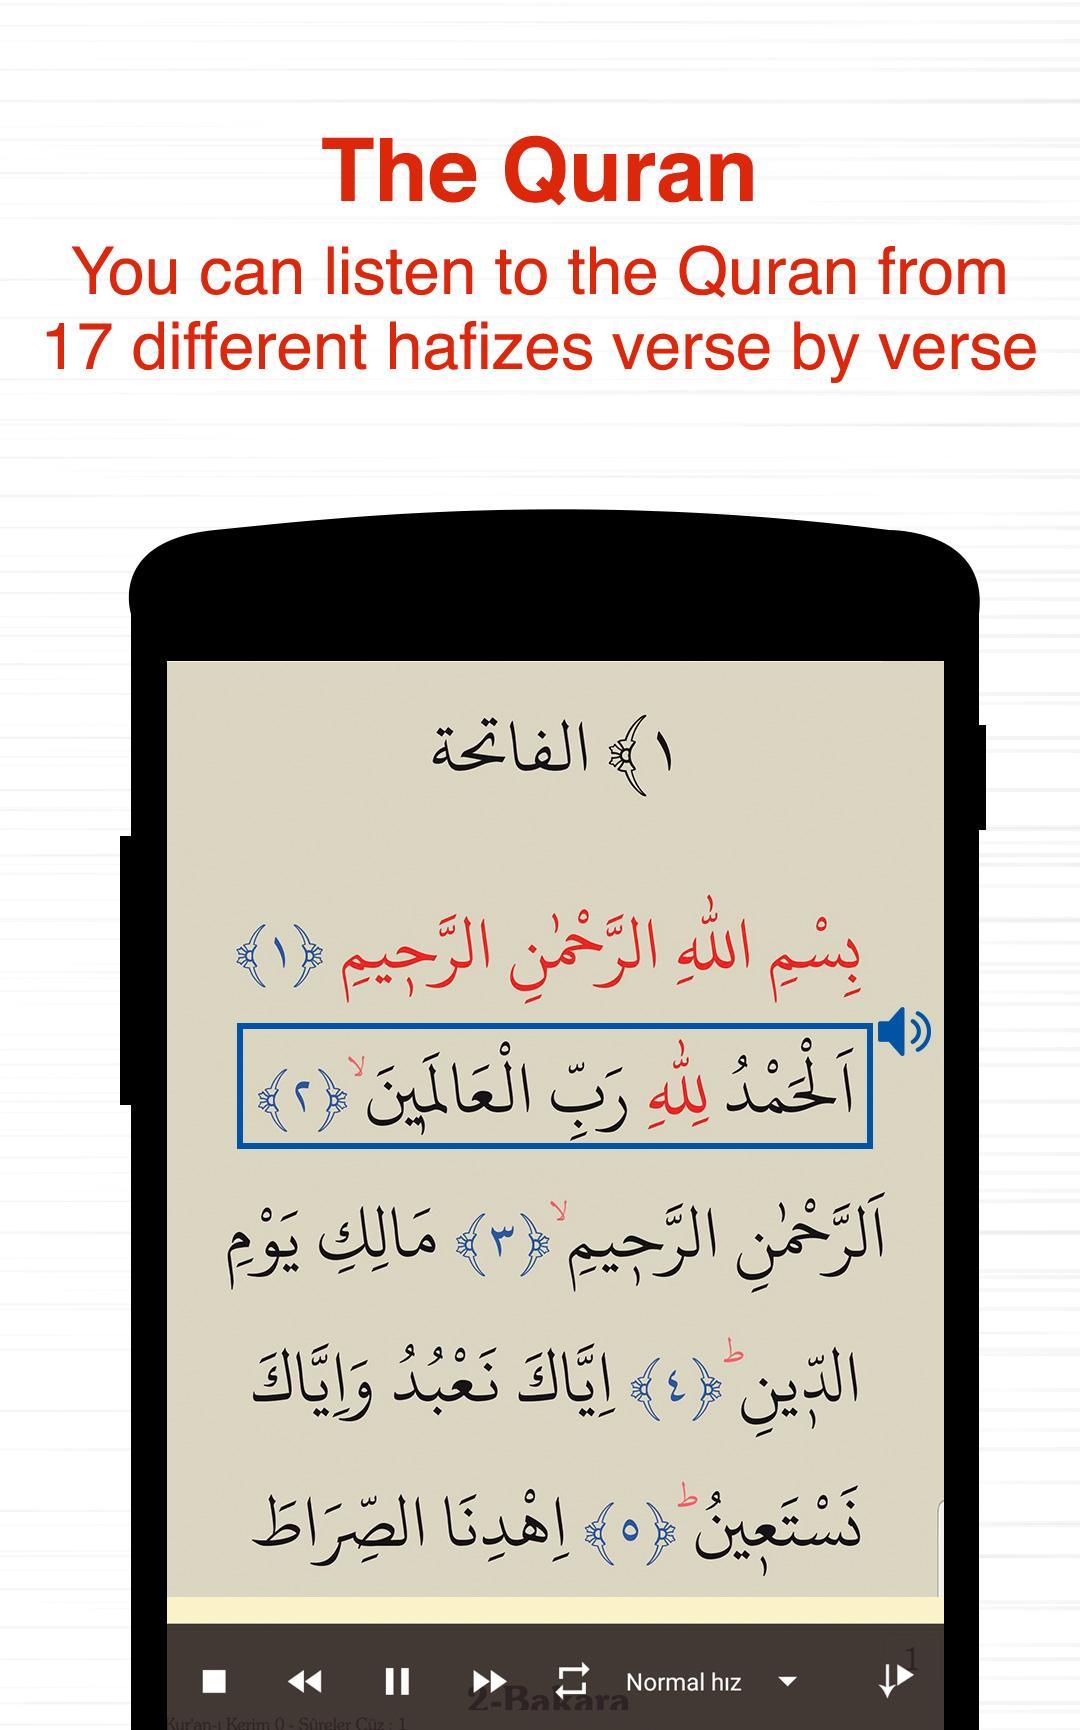 The Quran
You can listen to the Quran from
17 different hafizes verse by verse
١﴾ الفاتحة
بِسْمِ اللّٰهِ الرَّحْمٰنِ الرَّحٖيمِ ﴿١﴾
اَلْحَمْدُ لِلّٰهِ رَبِّ الْعَالَمٖينَۙ ﴿٢﴾
اَلرَّحْمٰنِ الرَّحٖيمِۙ ﴿٣﴾ مَالِكِ يَوْمِ
الدّٖينِؕ ﴿٤﴾ اِيَّاكَ نَعْبُدُ وَاِيَّاكَ
نَسْتَعٖينُؕ ﴿٥﴾ اِهْدِنَا الصِّرَاطَ
1
Normal hız
2-Bakara
Kur'an-ı Kerim 0 - Sûreler Cüz : 1